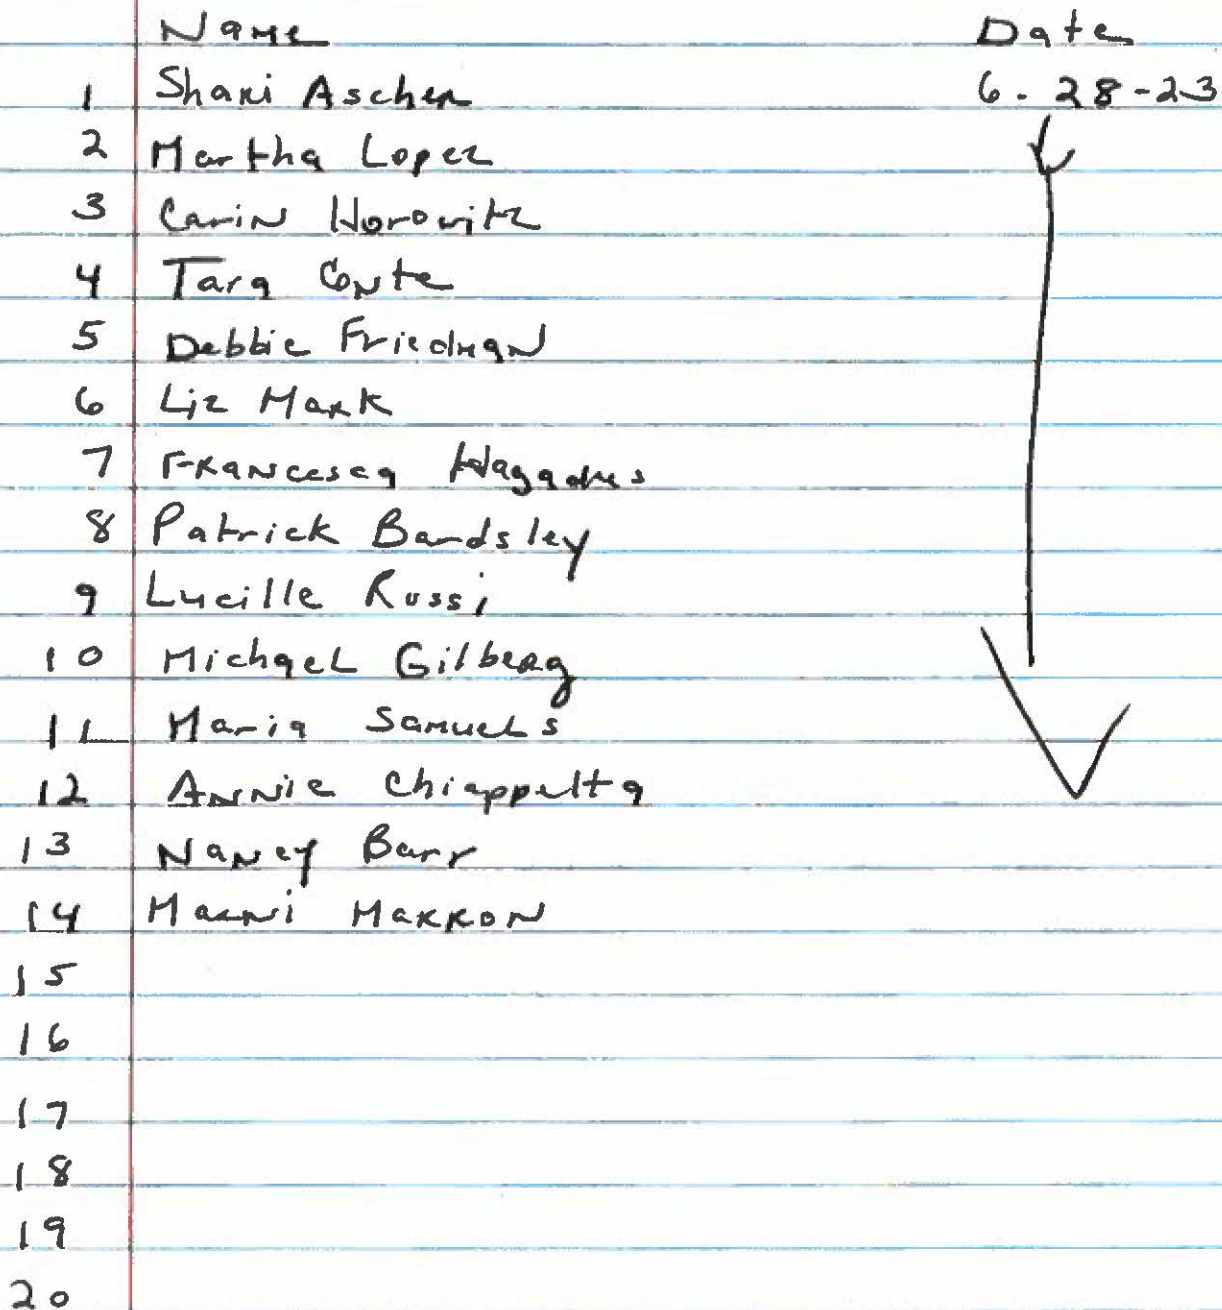 Name Date
1 Shari Ascher 6-28-23
2 Martha Lopez
3 Carin Horowitz
4 Tara Conte
5 Debbie Friedman
6 Liz Mark
7 Francesca
8 Patrick Bardsley
9 Lucille Rossi
10 Michael Gilberg
11 Maria Samuels
12 Annie Chiappetta
13 Nancy Barr
14 Marni Marron
15
16
17
18
19
20